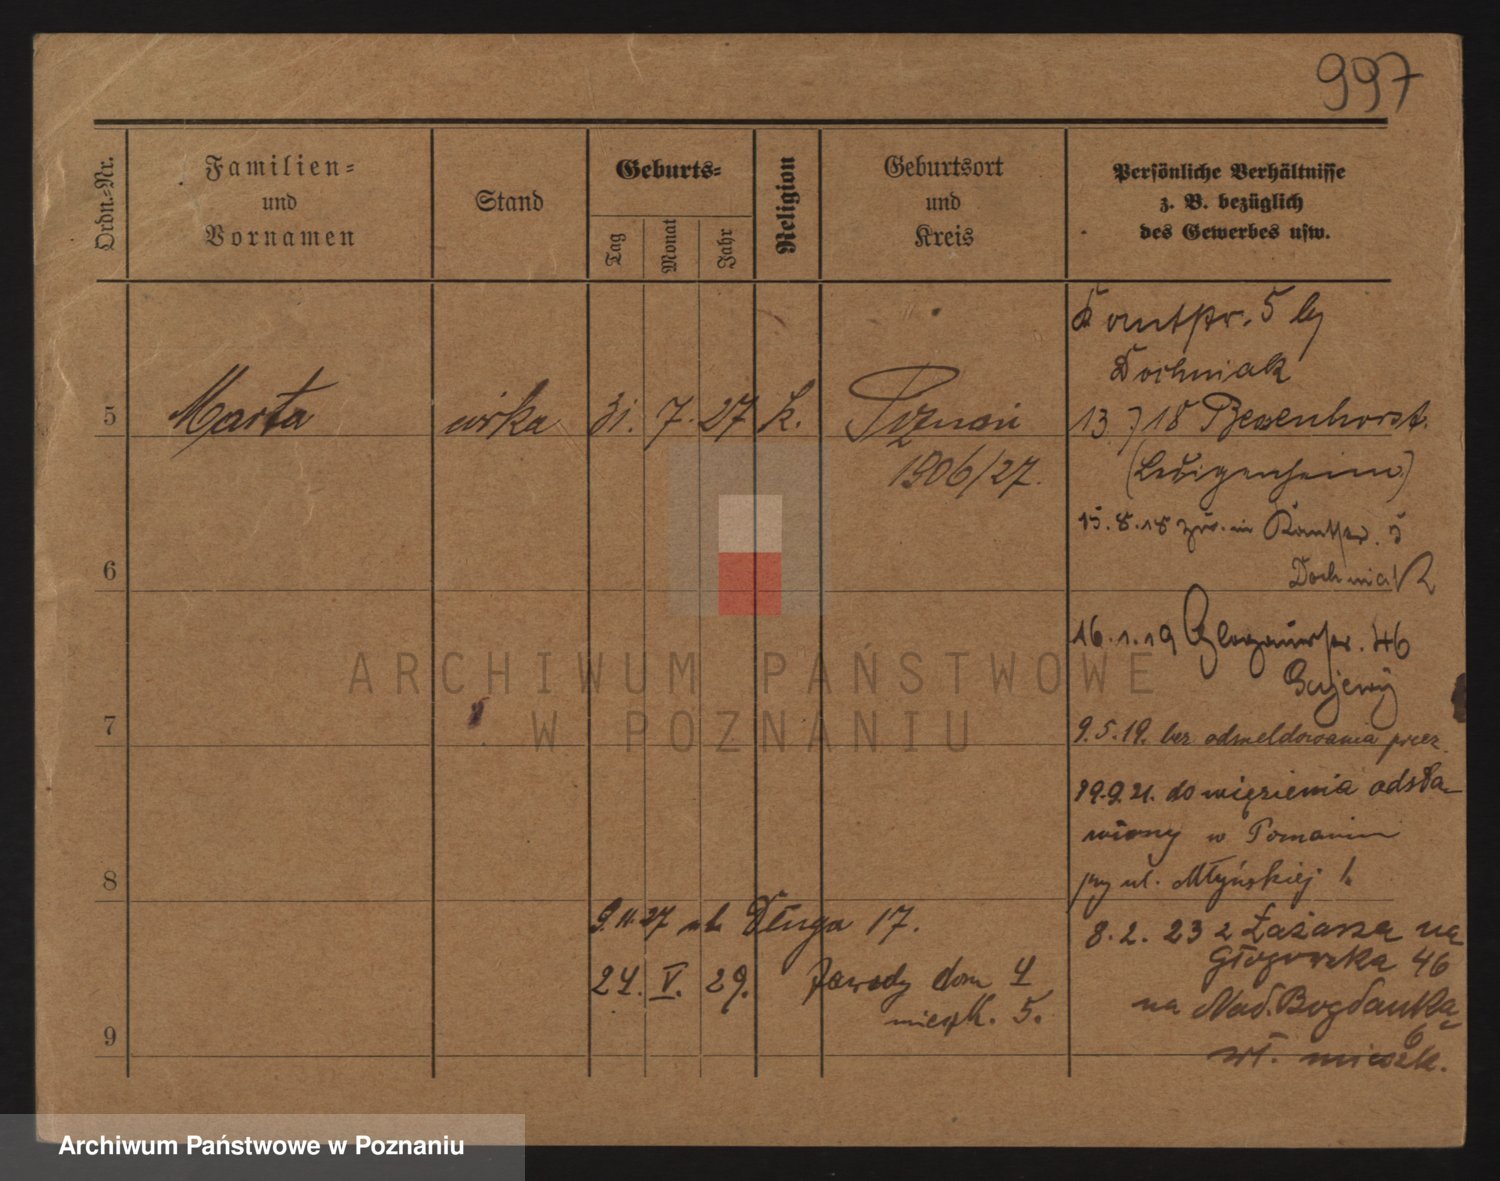 997
Ordn.-Nr.
Familien-
und
Vornamen
Stand
Geburts-
Tag
Monat
Jahr
Religion
Geburtsort
und
Kreis
Persönliche Verhältnisse
z. B. bezüglich
des Gewerbes usw.
5 Marta 31. 7. 27 k. Poznań
1906/27.
6
7
8
9
9.11.27 ul. Długa 17.
24. V. 29. Zawady dom 4
mieszk. 5.
Dochniak
13 7 18 Besenhorst.
(Ledigenheim)
15.8.18 zur. in 5
Dochniak
16.1.19 Glogauerstr. 46
9.5.19. bez odmeldowania przez
19.9.21. do więzienia odsta-
wiony w Poznaniu
przy ul. Młyńskiej 1.
8.2.23 z Łazarza na
Głogowska 46
na Nad Bogdanką
6
wł. mieszk.
ARCHIWUM PAŃSTWOWE
W POZNANIU
Archiwum Państwowe w Poznaniu